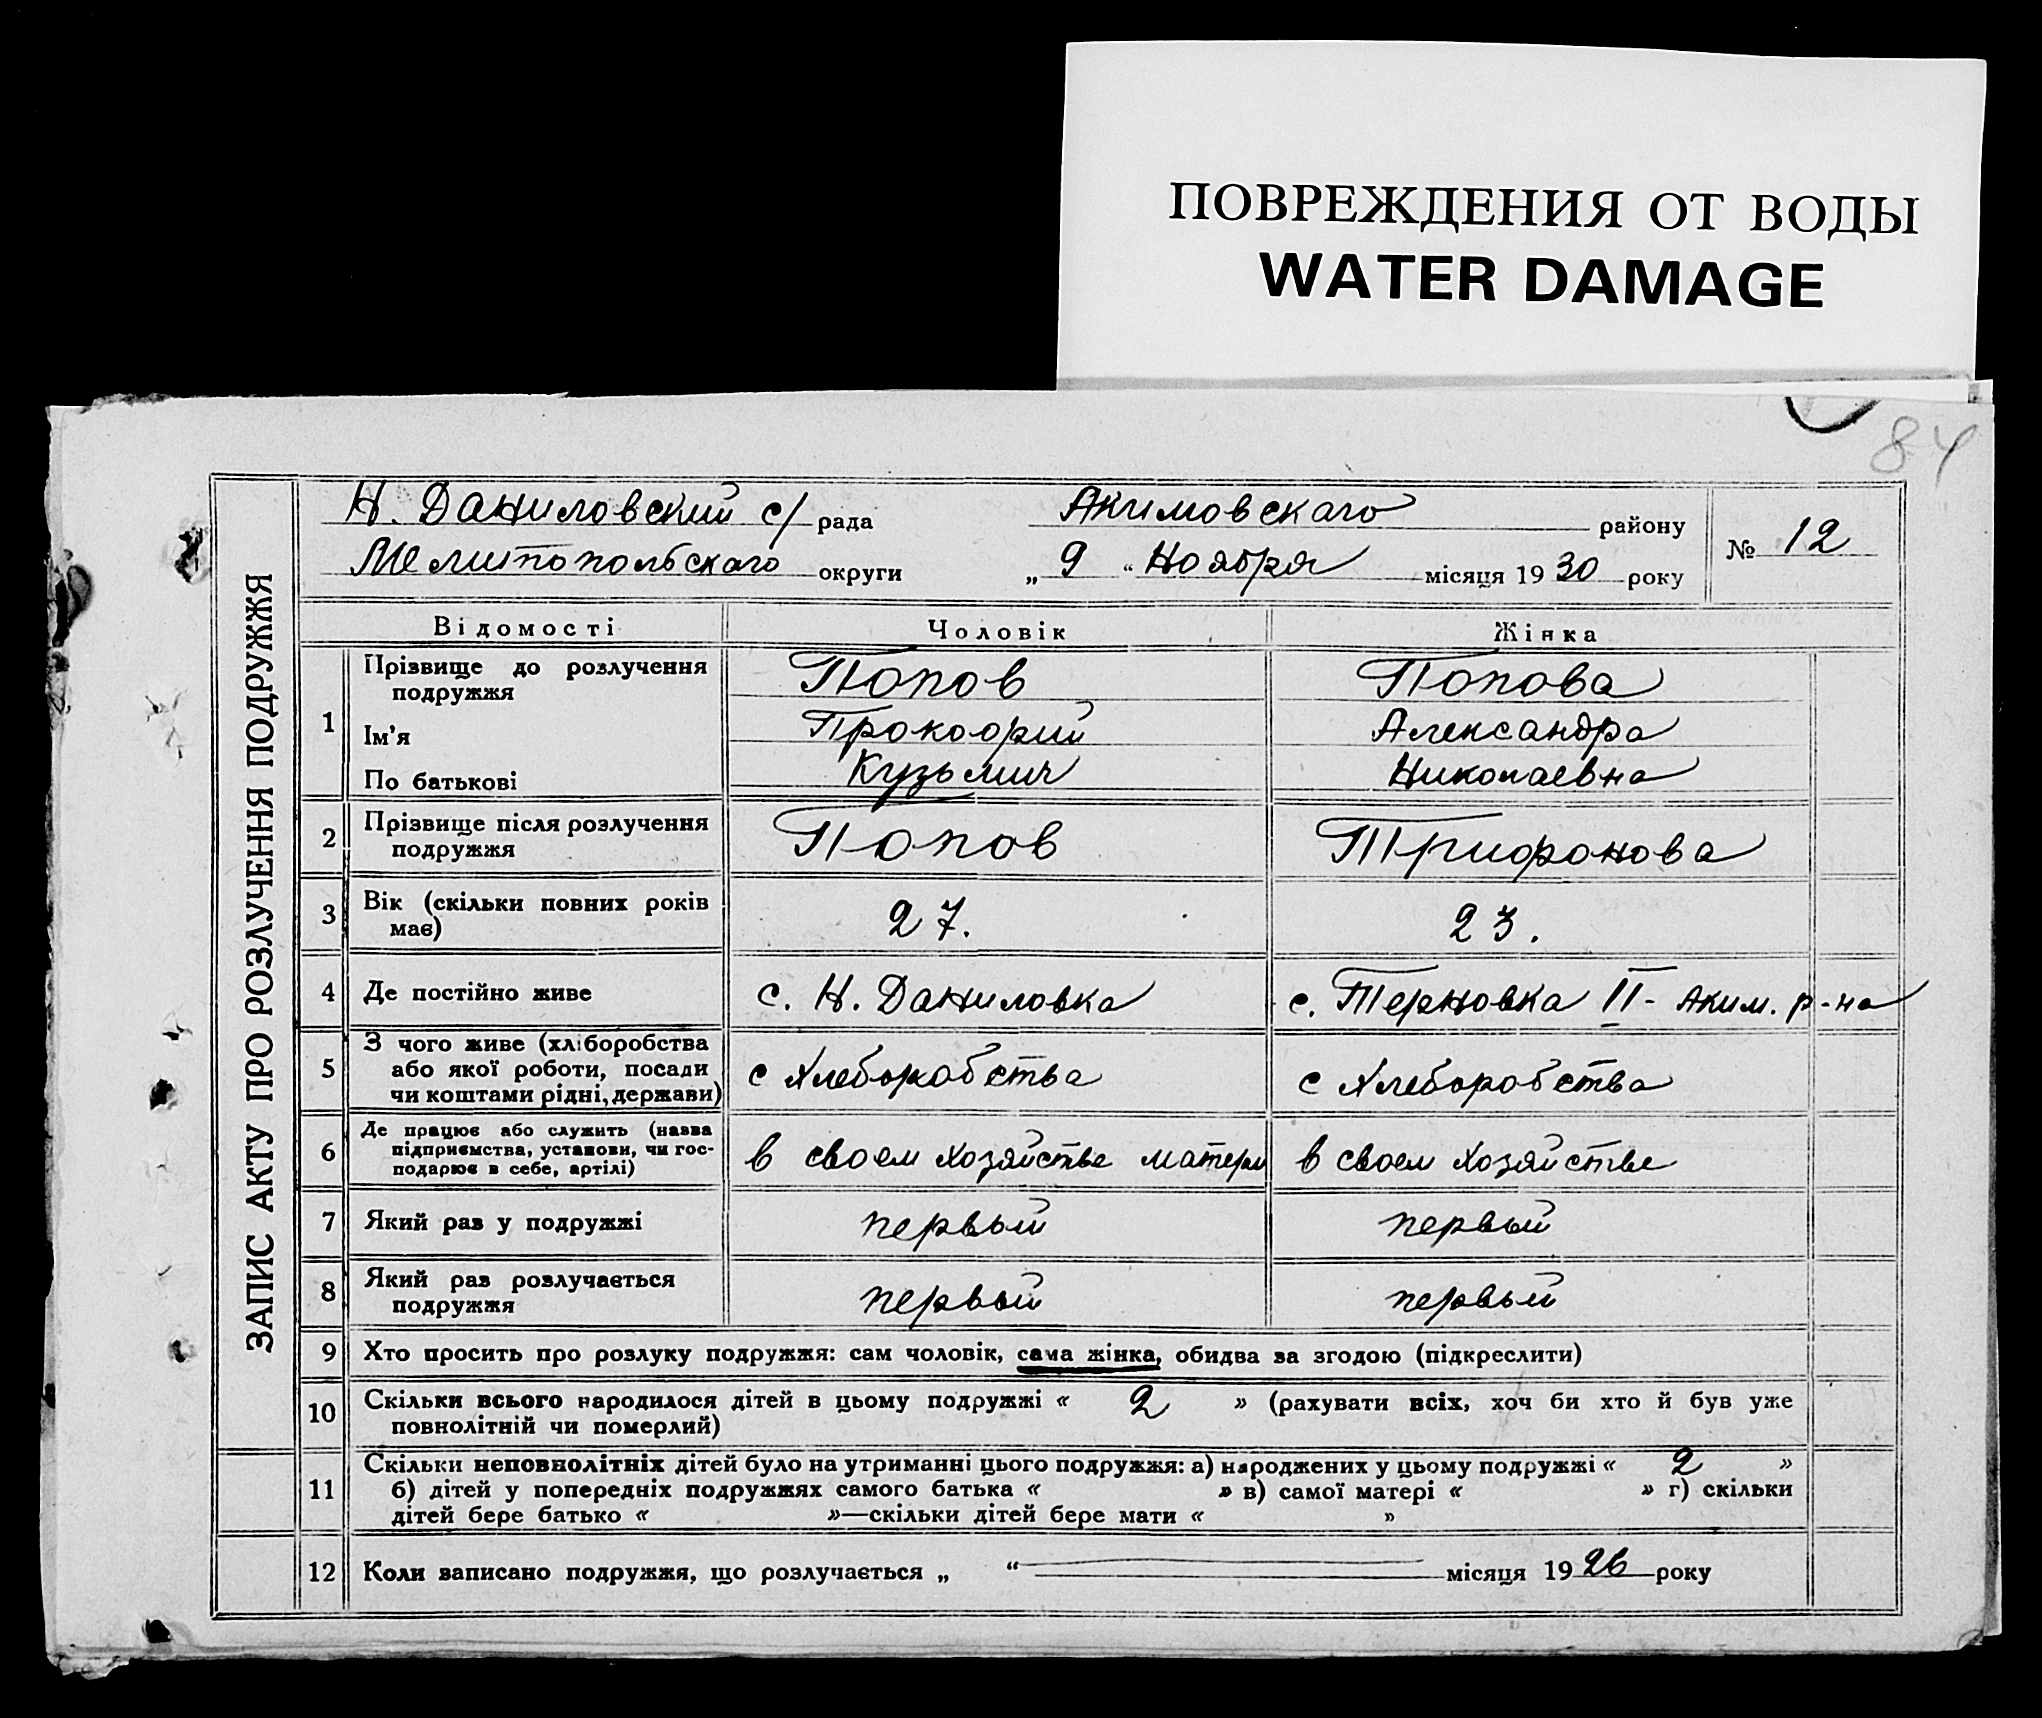 ПОВРЕЖДЕНИЯ ОТ ВОДЫ
WATER DAMAGE
84
ЗАПИС АКТУ ПРО РОЗЛУЧЕННЯ ПОДРУЖЖЯ
Н. Даниловский с/ рада Акимовскаго району № 12
Мелитопольскаго округи „ 9 “ Ноября місяця 1930 року
Відомості Чоловік Жінка
1 Прізвище до розлучення подружжя Попов Попова
Ім'я Прокофий Александра
По батькові Кузьмич Николаевна
2 Прізвище після розлучення подружжя Попов Трифонова
3 Вік (скільки повних років має) 27. 23.
4 Де постійно живе с. Н. Даниловка с. Терновка II - Аким. р-на
5 З чого живе (хліборобства
або якої роботи, посади
чи коштами рідні, держави) с хлеборобства с хлеборобства
6 Де працює або служить (назва
підприємства, установи, чи гос-
подарює в себе, артілі) в своем хозяйстве матери в своем хозяйстве
7 Який раз у подружжі первый первый
8 Який раз розлучається подружжя первый первый
9 Хто просить про розлуку подружжя: сам чоловік, сама жінка, обидва за згодою (підкреслити)
10 Скільки всього народилося дітей в цьому подружжі « 2 » (рахувати всіх, хоч би хто й був уже
повнолітній чи померлий)
11 Скільки неповнолітніх дітей було на утриманні цього подружжя: а) народжених у цьому подружжі « 2 »
б) дітей у попередніх подружжях самого батька « » в) самої матері « » г) скільки
дітей бере батько « »—скільки дітей бере мати « »
12 Коли записано подружжя, що розлучається „ “ місяця 1926 року